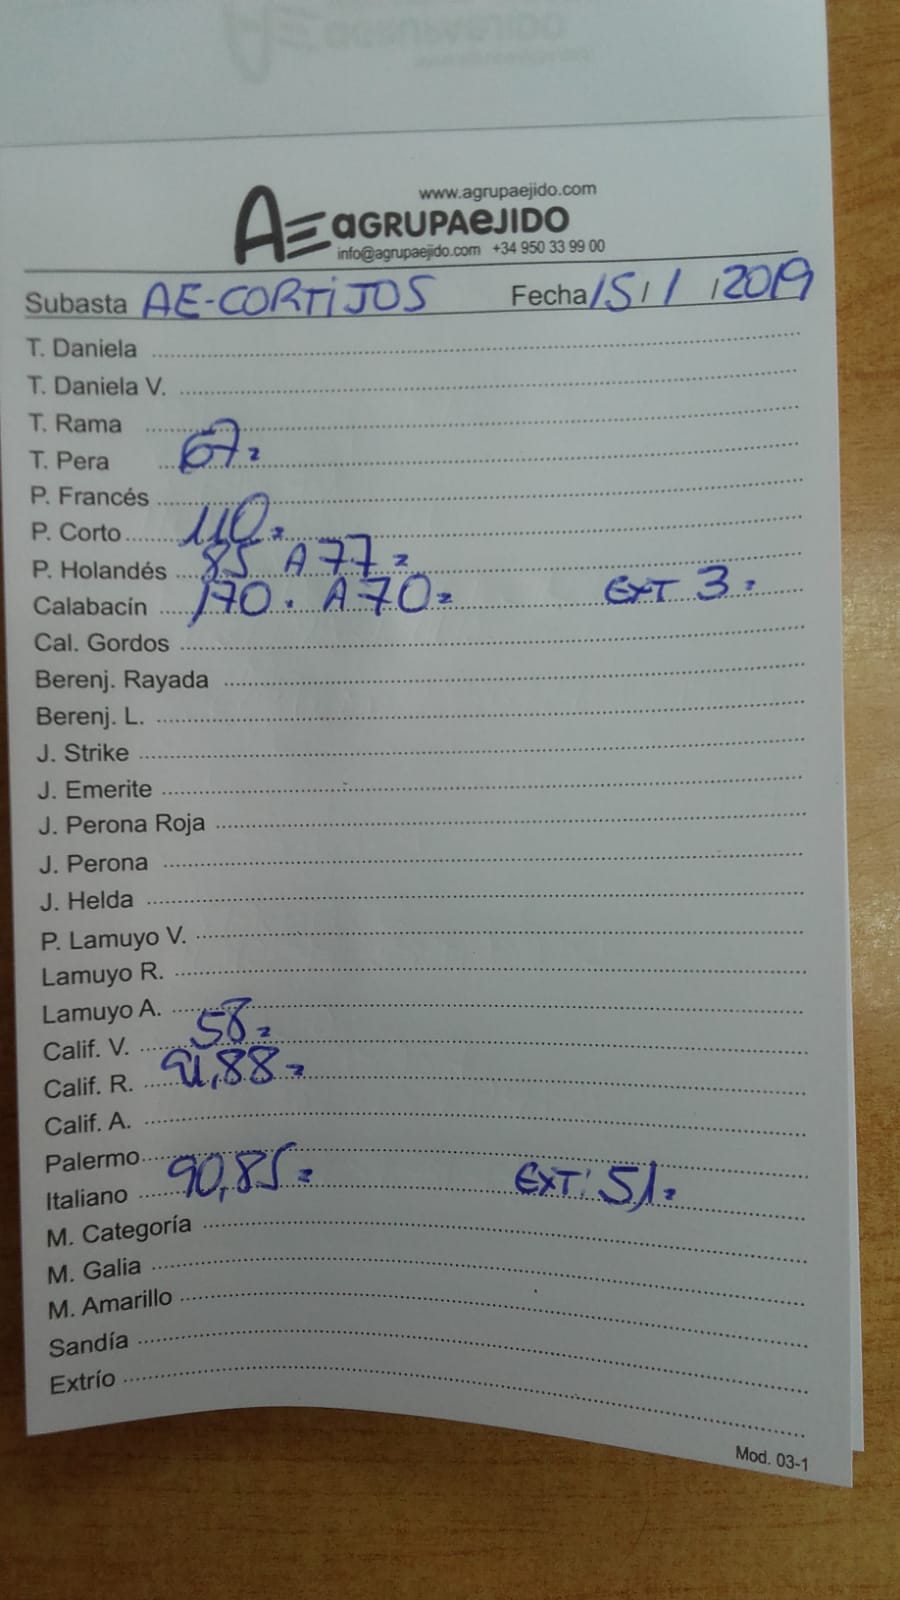 www.agrupaejido.com
AE aGRUPAeJIDO
info@agrupaejido.com +34 950 33 99 00
Subasta AE-CORTIJOS Fecha 15/1/2019
T. Daniela
T. Daniela V.
T. Rama
T. Pera 67=
P. Francés
P. Corto 110=
P. Holandés 85 A 77=
Calabacín 170. A 70= EXT 3=
Cal. Gordos
Berenj. Rayada
Berenj. L.
J. Strike
J. Emerite
J. Perona Roja
J. Perona
J. Helda
P. Lamuyo V.
Lamuyo R.
Lamuyo A.
Calif. V. 58=
Calif. R. 91,88=
Calif. A.
Palermo
Italiano 90,85= EXT: 51=
M. Categoría
M. Galia
M. Amarillo
Sandía
Extrío
Mod. 03-1